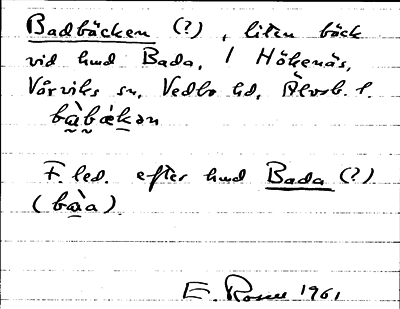 Badbäcken (?), liten bäck
vid hmd Bada, 1 Högenäs,
Vårviks sn, Vedbo hd, Älvsb. l.
bàbäkən
F.led. efter hmd Bada (?)
(bàa).
E. Rosell 1961